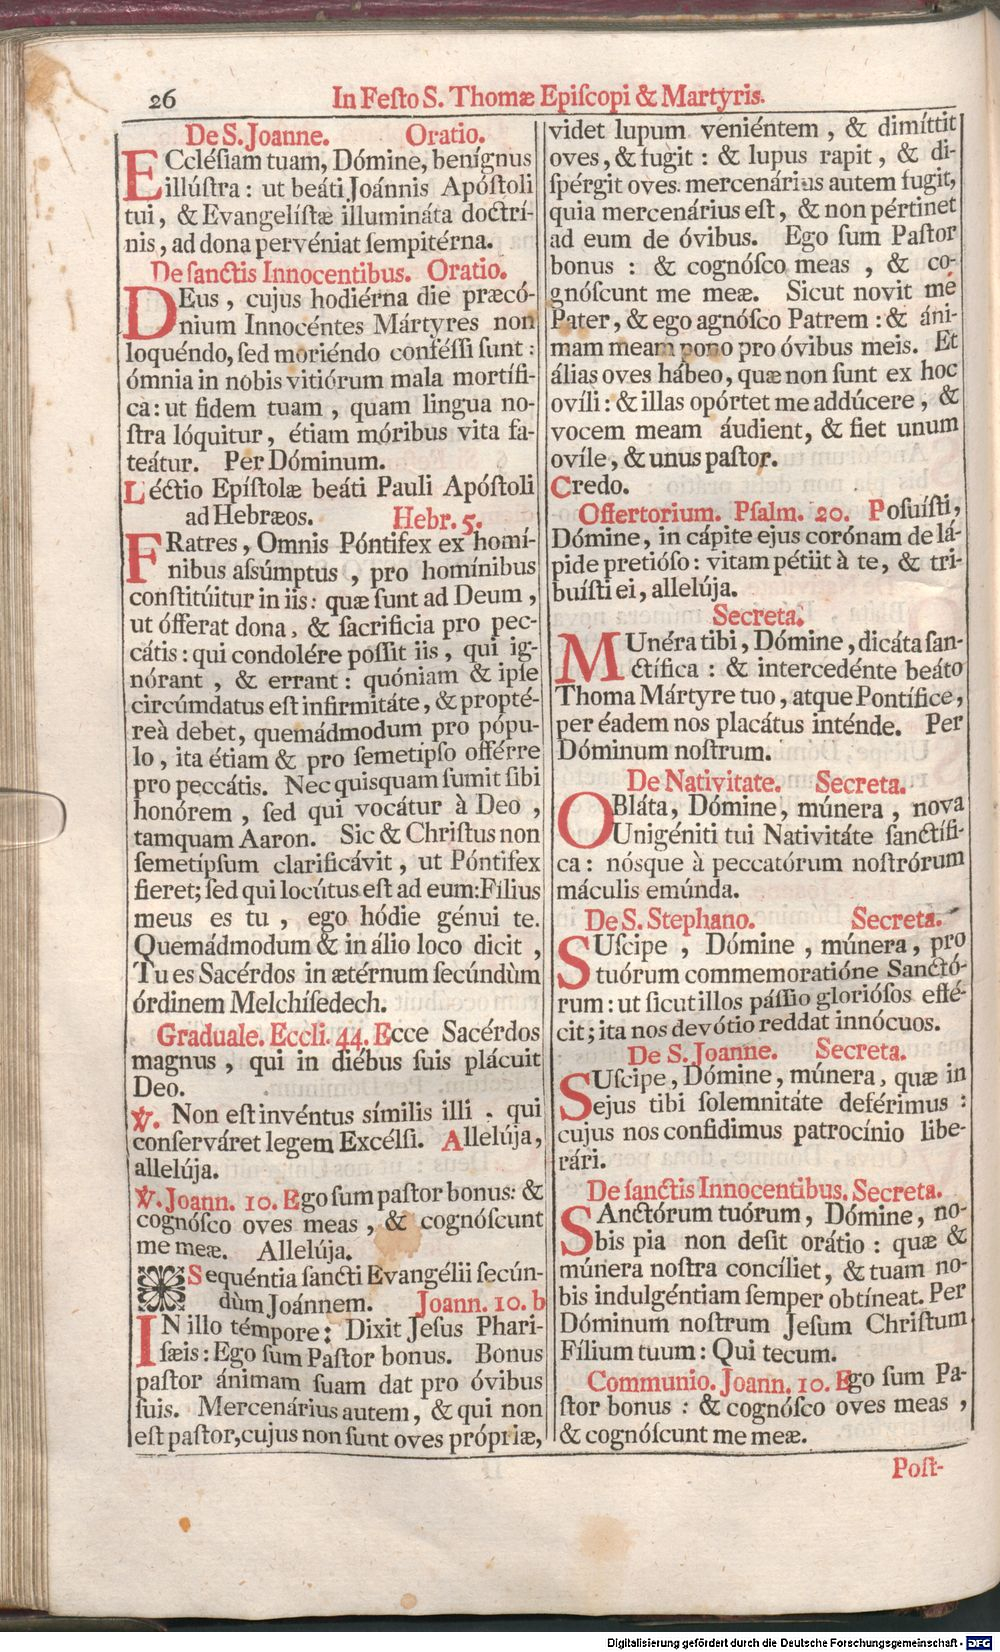 26 In Feſto S. Thomæ Epiſcopi & Martyris.
De S. Joanne. Oratio.
ECcléſiam tuam, Dómine, benígnus
illúſtra: ut beáti Joánnis Apóſtoli
tui, & Evangelíſtæ illumináta doctrí-
nis, ad dona pervéniat ſempitérna.
De ſanctis Innocentibus. Oratio.
DEus, cujus hodiérna die præcó-
nium Innocéntes Mártyres non
loquéndo, ſed moriéndo conféſſi ſunt:
ómnia in nobis vitiórum mala mortífi-
ca: ut fidem tuam, quam lingua no-
ſtra lóquitur, étiam móribus vita fa-
teátur. Per Dóminum.
Léctio Epíſtolæ beáti Pauli Apóſtoli
ad Hebræos. Hebr. 5.
FRatres, Omnis Póntifex ex homí-
nibus aſſúmptus, pro homínibus
conſtitúitur in iis: quæ ſunt ad Deum,
ut ófferat dona, & ſacrificia pro pec-
cátis: qui condolére poſſit iis, qui ig-
nórant, & errant: quóniam & ipſe
circúmdatus eſt infirmitáte, & propté-
reà debet, quemádmodum pro pópu-
lo, ita étiam & pro ſemetipſo offérre
pro peccátis. Nec quisquam ſumit ſibi
honórem, ſed qui vocátur à Deo,
tamquam Aaron. Sic & Chriſtus non
ſemetípſum clarificávit, ut Póntifex
fieret; ſed qui locútus eſt ad eum: Fílius
meus es tu, ego hódie génui te.
Quemádmodum & in álio loco dicit,
Tu es Sacérdos in ætérnum ſecúndùm
órdinem Melchíſedech.
Graduale. Eccli. 44. Ecce Sacérdos
magnus, qui in diébus ſuis plácuit
Deo.
℣. Non eſt invéntus símilis illi, qui
conſerváret legem Excélſi. Allelúja,
allelúja.
℣. Joann. 10. Ego ſum paſtor bonus: &
cognóſco oves meas, & cognóſcunt
me meæ. Allelúja.
Sequéntia ſancti Evangélii ſecún-
dùm Joánnem. Joann. 10. b
IN illo témpore: Dixit Jeſus Phari-
ſæis: Ego ſum Paſtor bonus. Bonus
paſtor ánimam ſuam dat pro óvibus
ſuis. Mercenárius autem, & qui non
eſt paſtor, cujus non ſunt oves própriæ,
videt lupum veniéntem, & dimíttit
oves, & fugit: & lupus rapit, & di-
ſpérgit oves. mercenárius autem fugit,
quia mercenárius eſt, & non pértinet
ad eum de óvibus. Ego ſum Paſtor
bonus: & cognóſco meas, & co-
gnóſcunt me meæ. Sicut novit me
Pater, & ego agnóſco Patrem: & áni-
mam meam pono pro óvibus meis. Et
álias oves hábeo, quæ non ſunt ex hoc
ovíli: & illas opórtet me addúcere, &
vocem meam áudient, & fiet unum
ovíle, & unus paſtor.
Credo.
Offertorium. Pſalm. 20. Poſuíſti,
Dómine, in cápite ejus corónam de lá-
pide pretióſo: vitam pétiit à te, & tri-
buíſti ei, allelúja.
Secreta.
MUnéra tibi, Dómine, dicáta ſan-
ctífica: & intercedénte beáto
Thoma Mártyre tuo, atque Pontífice,
per éadem nos placátus inténde. Per
Dóminum noſtrum.
De Nativitate. Secreta.
OBláta, Dómine, múnera, nova
Unigéniti tui Nativitáte ſanctífi-
ca: nósque à peccatórum noſtrórum
máculis emúnda.
De S. Stephano. Secreta.
SUſcipe, Dómine, múnera, pro
tuórum commemoratióne Sanctó-
rum: ut ſicut illos páſſio glorióſos effé-
cit; ita nos devótio reddat innócuos.
De S. Joanne. Secreta.
SUſcipe, Dómine, múnera, quæ in
ejus tibi ſolemnitáte deférimus:
cujus nos confidimus patrocínio libe-
rári.
De ſanctis Innocentibus. Secreta.
SAnctórum tuórum, Dómine, no-
bis pia non deſit orátio: quæ &
múnera noſtra concíliet, & tuam no-
bis indulgéntiam ſemper obtíneat. Per
Dóminum noſtrum Jeſum Chriſtum
Fílium tuum: Qui tecum.
Communio. Joann. 10. Ego ſum Pa-
ſtor bonus: & cognóſco oves meas,
& cognóſcunt me meæ.
Poſt-
Digitalisierung gefördert durch die Deutsche Forschungsgemeinschaft - DFG